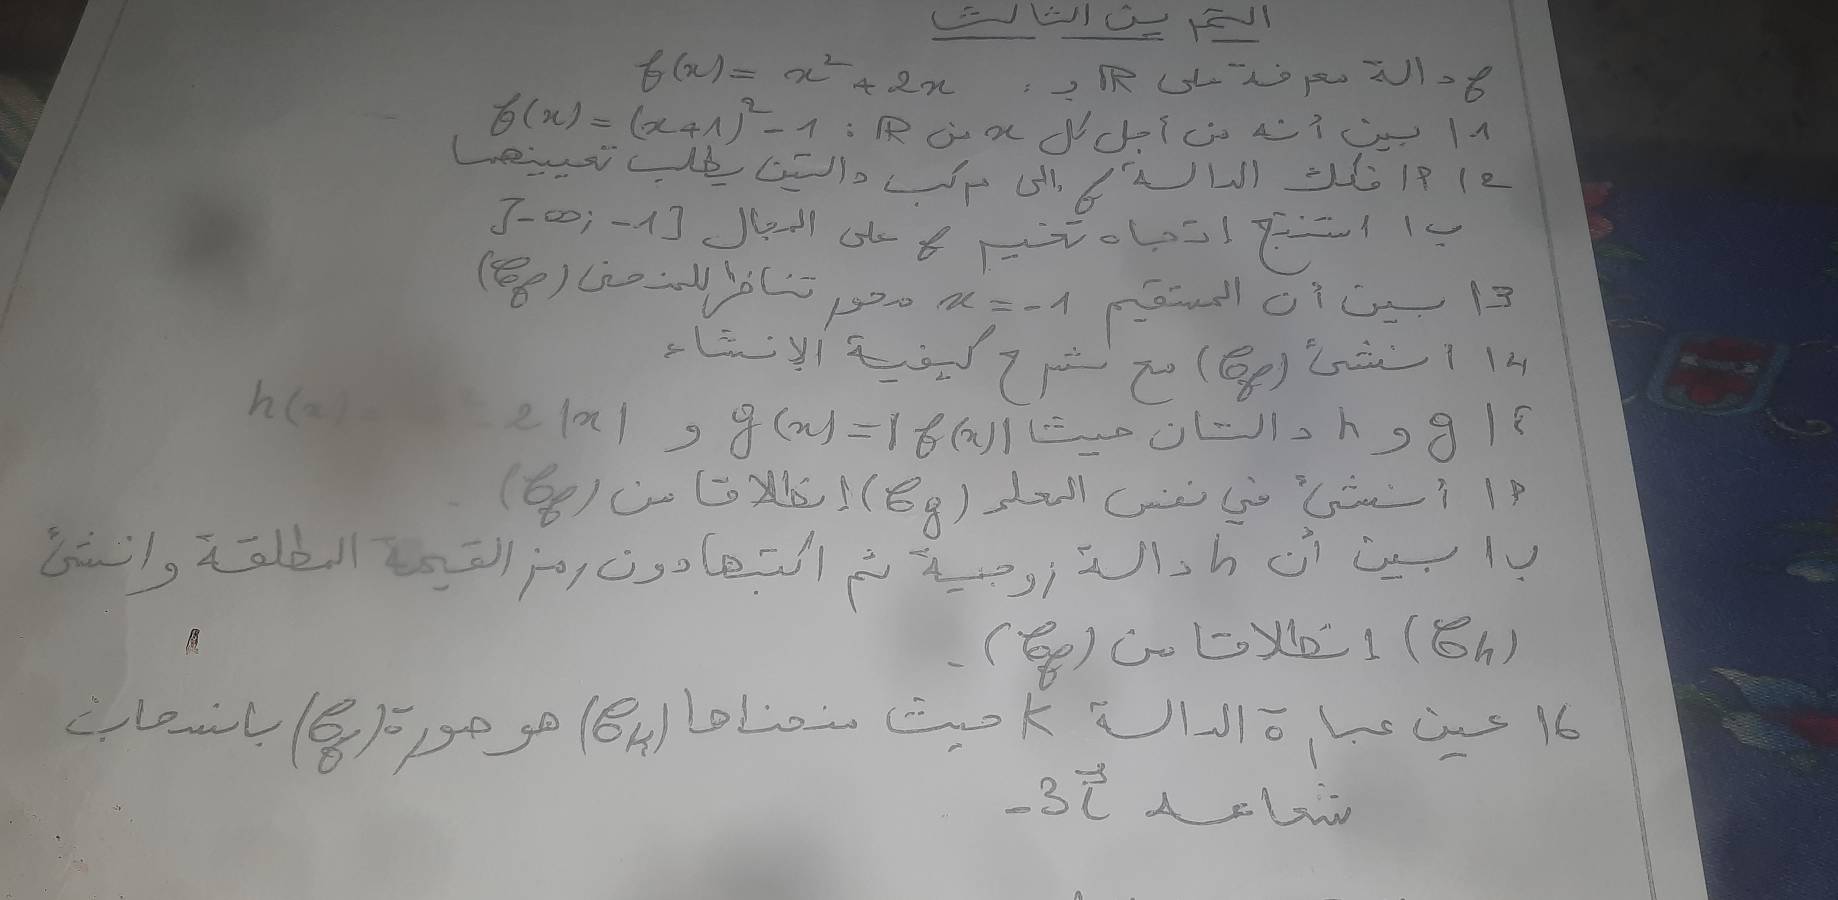 التمرين الثالث
f دالة معرفة على R بـ : f(x) = x² + 2x
1) بين أنه من أجل كل x من R : f(x) = (x+1)² - 1
2) أ) فكك الدالة f إلى مركب دالتين يطلب تعيينهما
ب) استنتج اتجاه تغير f على المجال ]-∞; -1]
3) بين أن المستقيم x = -1 محور تناظر للمنحنى (Cf)
4) انشئ (Cf) مع شرح كيفية الإنشاء
5) g و h دالتان حيث g(x) = |f(x)| و h(x) 2|x|
أ) أنشئ في نفس المعلم (Cg) إنطلاقا من (Cf)
ب) بين أن h دالة زوجية ثم اكتبها دون رمز القيمة المطلقة وانشئ
(Ch) انطلاقا من (Cf).
6) عين عبارة الدالة K حيث منحناها (Ck) هو صورة (Cf) بانسحاب
شعاعه -3i